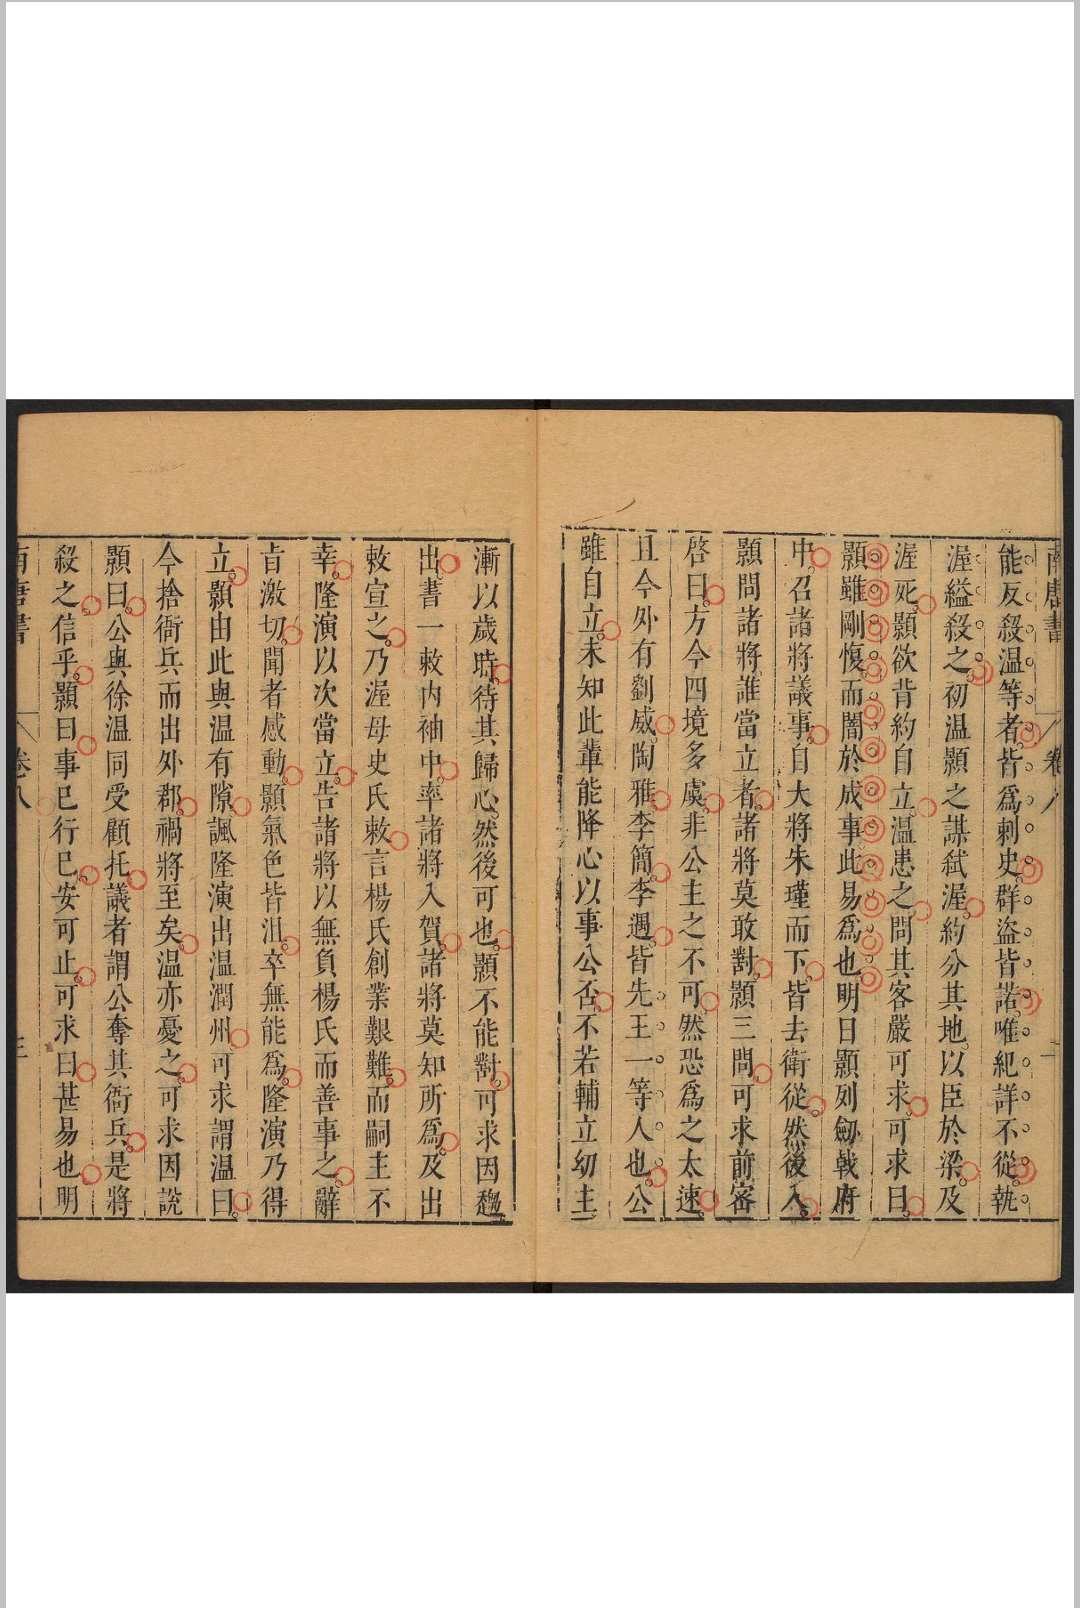 南唐書 卷八
能反殺温等者皆爲刺史群盜皆諾唯紀詳不從執
渥縊殺之初温顥之謀弑渥約分其地以臣於梁及
渥死顥欲背約自立温患之問其客嚴可求可求曰
顥雖剛愎而闇於成事此易爲也明日顥列劒戟府
中召諸將議事自大將朱瑾而下皆去衛從然後入
顥問諸將誰當立者諸將莫敢對顥三問可求前密
啓曰方今四境多虞非公主之不可然恐爲之太速
且今外有劉威陶雅李簡李遇皆先王一等人也公
雖自立未知此輩能降心以事公否不若輔立幼主
漸以歲時待其歸心然後可也顥不能對可求因趨
出書一敕内袖中率諸將入賀諸將莫知所爲及出
敕宣之乃渥母史氏敕言楊氏創業艱難而嗣主不
幸隆演以次當立告諸將以無負楊氏而善事之辭
旨激切聞者感動顥氣色皆沮卒無能爲隆演乃得
立顥由此與温有隙諷隆演出温潤州可求謂温曰
今捨衙兵而出外郡禍將至矣温亦憂之可求因説
顥曰公與徐温同受顧托議者謂公奪其衙兵是將
殺之信乎顥曰事已行已安可止可求曰甚易也明
南唐書 卷八 三